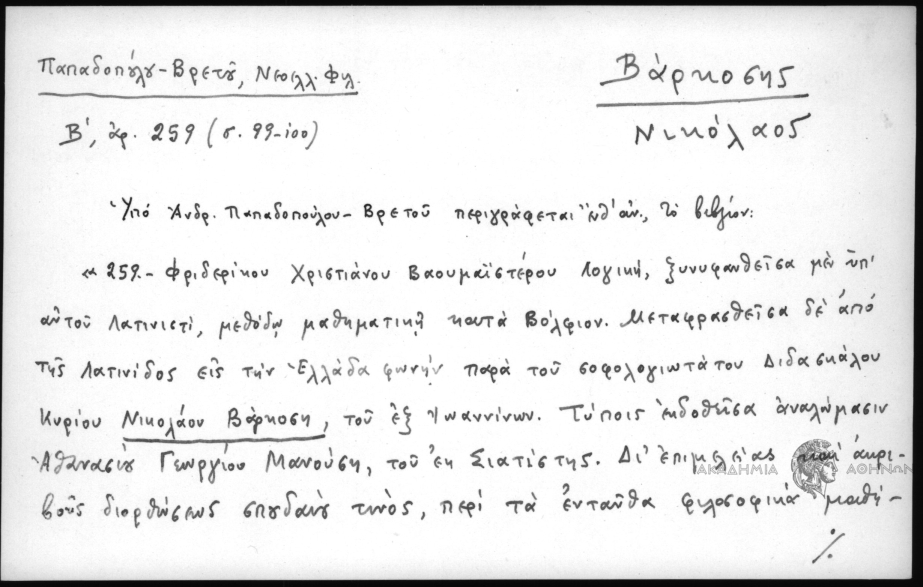 Παπαδοπούλου-Βρετοῦ, Νεοελλ. Φιλ.
Βάρκοσης
Νικόλαος
Β', ἀρ. 259 (σ. 99-100)
Ὑπό Ἀνδρ. Παπαδοπούλου-Βρετοῦ περιγράφεται ἔνθ' ἀν., τὸ βιβλίον:
« 259.- Φριδερίκου Χριστιάνου Βαουμαϊστέρου Λογική, ξυνυφανθεῖσα μὲν ὑπ'
αὐτοῦ Λατινιστὶ, μεθόδῳ μαθηματικῇ κατὰ Βόλφιον. Μεταφρασθεῖσα δὲ ἀπό
τῆς Λατινίδος εἰς τὴν Ἑλλάδα φωνὴν παρὰ τοῦ σοφολογιωτάτου Διδασκάλου
Κυρίου Νικολάου Βάρκοση, τοῦ ἐξ Ἰωαννίνων. Τύποις ἐκδοθεῖσα ἀναλώμασιν
Ἀθανασίου Γεωργίου Μανούση, τοῦ ἐκ Σιατίστης. Δι' ἐπιμελείας καὶ ἀκρι-
βοῦς διορθώσεως σπουδαίου τινὸς, περὶ τὰ ἐνταῦθα φιλοσοφικὰ μαθή-
./.
ΑΚΑΔΗΜΙΑ ΑΘΗΝΩΝ